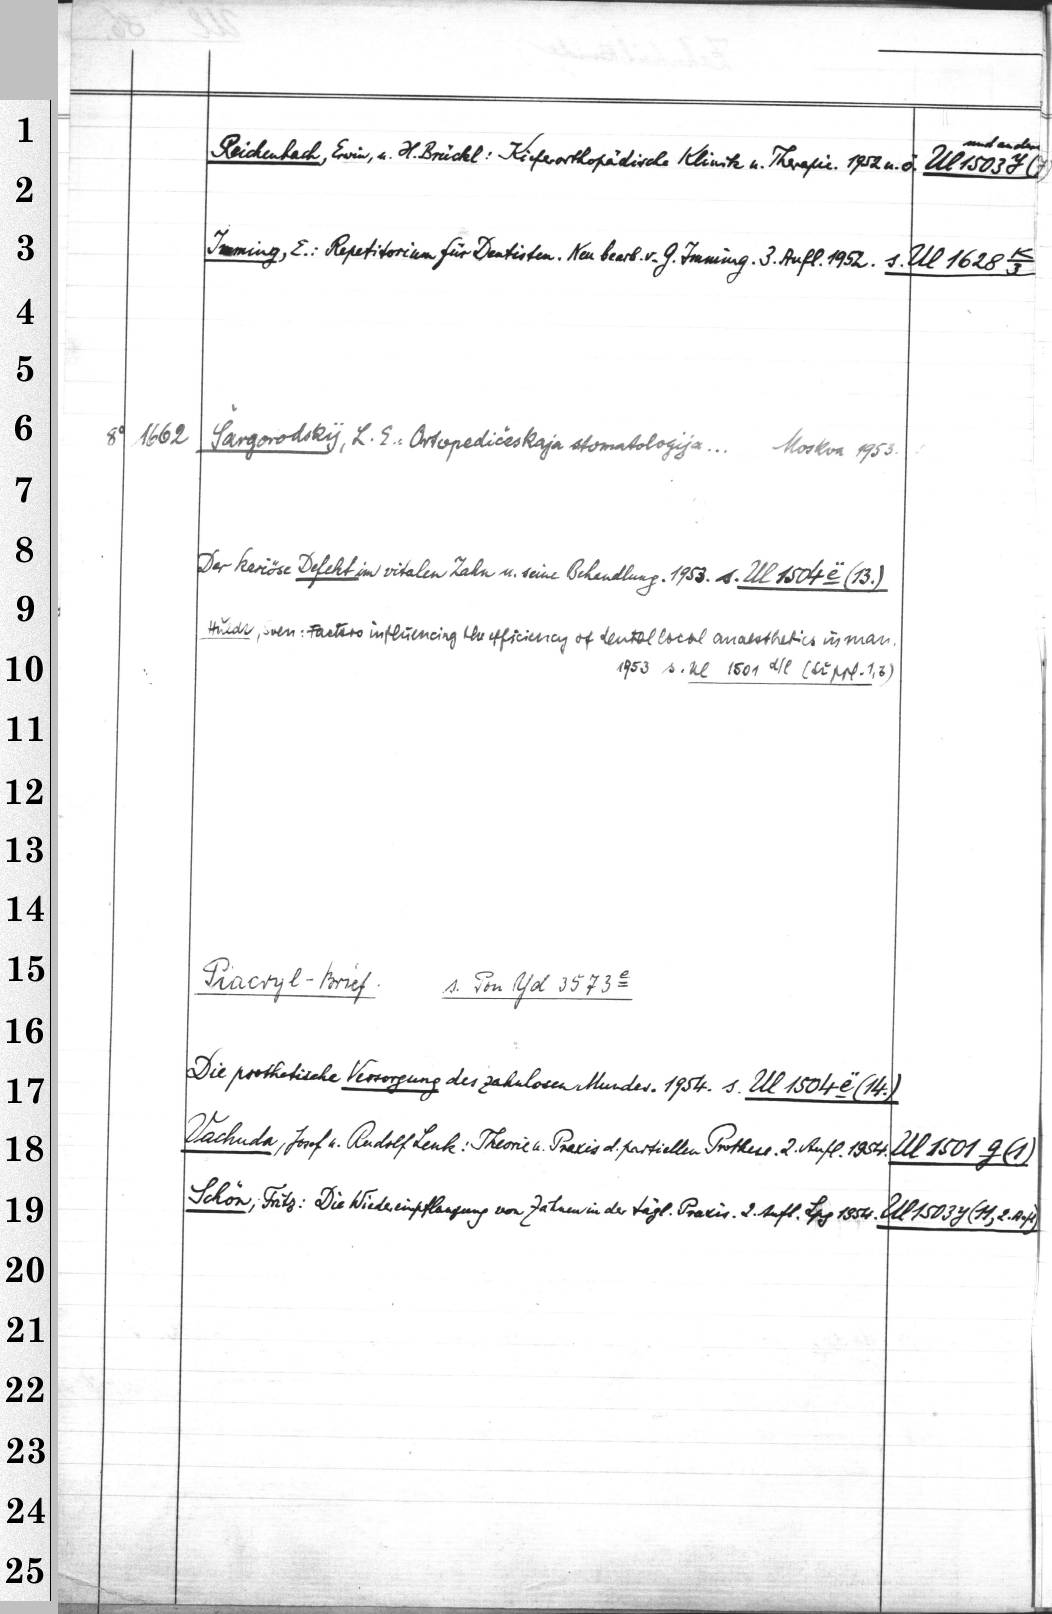 1
2
3
4
5
6
7
8
9
10
11
12
13
14
15
16
17
18
19
20
21
22
23
24
25
und andere
Reichenbach, Erwin, u. H. Brückl: Kieferorthopädische Klinik u. Therapie. 1952 u. ö. Ul 1503 y (7)
Imming, E.: Repetitorium für Dentisten. Neu bearb. v. G. Imming. 3. Aufl. 1952. s. Ul 1628 K/3
8° 1662 Šargorodskij, L. E.: Ortopedičeskaja stomatologija... Moskva 1953.
Der kariöse Defekt im vitalen Zahn u. seine Behandlung. 1953. s. Ul 1504 ë (13.)
Huldt, Sven: Factors influencing the efficiency of dental local anaesthetics in man.
1953 s. Ul 1501 d/l (Suppl. 1,3)
Piacryl-Brief. s. Pon Yd 3573 e
Die prothetische Versorgung des zahnlosen Mundes. 1954. s. Ul 1504 ë (14.)
Vachuda, Josef u. Rudolf Lenk: Theorie u. Praxis d. partiellen Prothese. 2. Aufl. 1954. Ul 1501 g (1)
Schön, Fritz: Die Wiedereinpflanzung von Zähnen in der tägl. Praxis. 2. Aufl. Lpg 1954. Ul 1503 y (11, 2. Aufl)